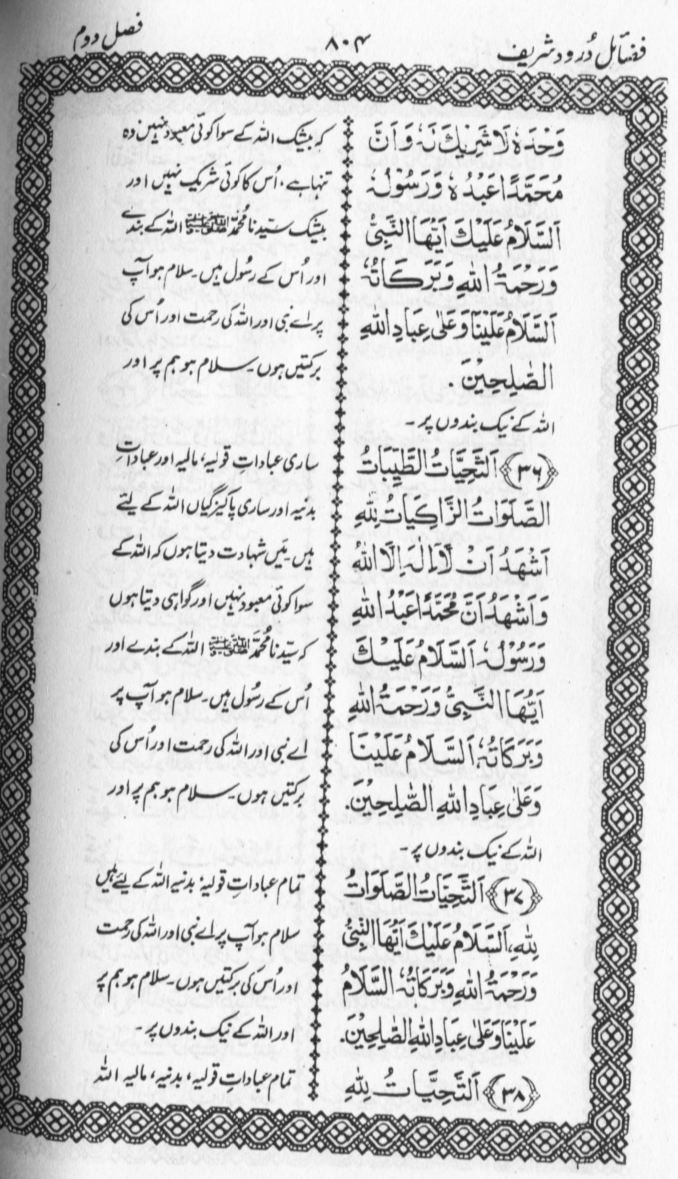 فضائل درود شریف
۸۰۴
فصل دوم
وَحْدَهٗ لَا شَرِيْكَ لَهٗ وَاَنَّ
مُحَمَّدًا عَبْدُهٗ وَرَسُوْلُهٗ
اَلسَّلَامُ عَلَيْكَ اَيُّهَا النَّبِيُّ
وَرَحْمَةُ اللهِ وَبَرَكَاتُهٗ
اَلسَّلَامُ عَلَيْنَا وَعَلٰى عِبَادِ اللهِ
الصّٰلِحِيْن .
کہ بیشک اللہ کے سوا کوئی معبود نہیں وہ
تنہا ہے، اُس کا کوئی شریک نہیں اور
بیشک سیّدنا مُحمّد ﷺ اللہ کے بندے
اور اُس کے رسُول ہیں۔ سلام ہو آپ
پر اے نبی اور اللہ کی رحمت اور اُس کی
برکتیں ہوں۔ سلام ہو ہم پر اور
اللہ کے نیک بندوں پر۔
﴿۳۶﴾ اَلتَّحِيَّاتُ الطَّيِّبَاتُ
الصَّلَوَاتُ الزَّاكِيَاتُ لِلّٰهِ
اَشْهَدُ اَنْ لَّا اِلٰهَ اِلَّا اللهُ
وَاَشْهَدُ اَنَّ مُحَمَّدًا عَبْدُ اللهِ
وَرَسُوْلُهٗ، اَلسَّلَامُ عَلَيْكَ
اَيُّهَا النَّبِيُّ وَرَحْمَةُ اللهِ
وَبَرَكَاتُهٗ، اَلسَّلَامُ عَلَيْنَا
وَعَلٰى عِبَادِ اللهِ الصّٰلِحِيْنَ.
ساری عباداتِ قولیہ، مالیہ اور عبادات
بدنیہ اور ساری پاکیزگیاں اللہ کے لئے
ہیں۔ مَیں شہادت دیتا ہوں کہ اللہ کے
سوا کوئی معبود نہیں اور گواہی دیتا ہوں
کہ سیّدنا مُحمّد ﷺ اللہ کے بندے اور
اُس کے رسُول ہیں۔ سلام ہو آپ پر
اے نبی اور اللہ کی رحمت اور اُس کی
برکتیں ہوں۔ سلام ہو ہم پر اور
اللہ کے نیک بندوں پر۔
﴿۳۷﴾ اَلتَّحِيَّاتُ الصَّلَوَاتُ
لِلّٰهِ، اَلسَّلَامُ عَلَيْكَ اَيُّهَا النَّبِيُّ
وَرَحْمَةُ اللهِ وَبَرَكَاتُهٗ، السَّلَامُ
عَلَيْنَا وَعَلٰى عِبَادِ اللهِ الصّٰلِحِيْنَ.
تمام عباداتِ قولیہ، بدنیہ اللہ کے لیۓ ہیں
سلام ہو آپ پر اے نبی اور اللہ کی رحمت
اور اُس کی برکتیں ہوں۔ سلام ہو ہم پر
اور اللہ کے نیک بندوں پر۔
﴿۳۸﴾ اَلتَّحِيَّاتُ لِلّٰهِ
تمام عباداتِ قولیہ، بدنیہ، مالیہ اللہ